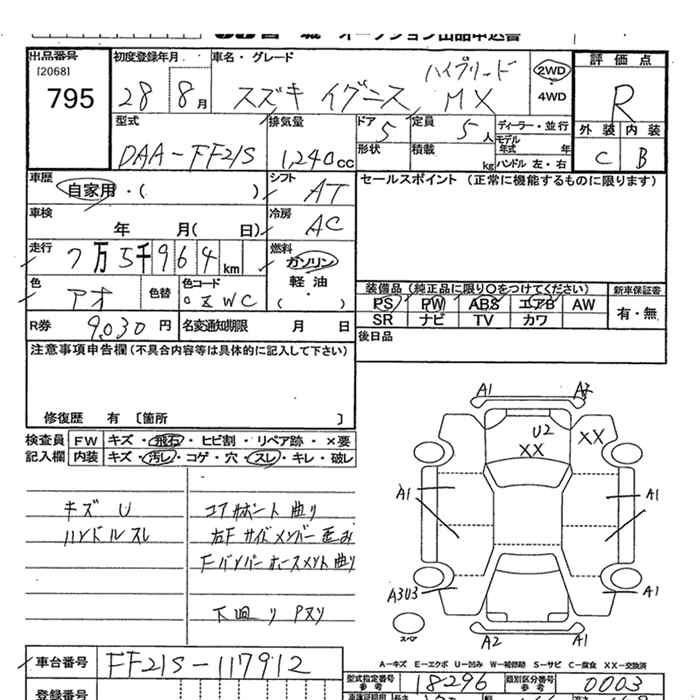 オークション出品申込書
出品番号 初度登録年月 車名・グレード 評価点
[2068] ハイブリード 2WD
795 28 8月 スズキ イグニス MX 4WD R
型式 排気量 ドア 定員 ディーラー・並行 外装 内装
5 5人 モデル年式 年
DAA-FF21S 1,240cc 形状 積載 kg ハンドル 左・右 C B
車歴 シフト セールスポイント (正常に機能するものに限ります)
自家用・( ) AT
車検 冷房
年 月( 日) AC
走行 燃料
7万5千964km ガソリン
色 色替 色コード 軽油
アオ WC ・( ) 装備品(純正品に限り○をつけてください) 新車保証書
PS PW ABS エアB AW 有・無
R券 9,030円 名変通知期限 月 日 SR ナビ TV カワ
注意事項申告欄(不具合内容等は具体的に記入して下さい) 後日品
修復歴 有 〔箇所 〕
検査員 FW キズ・飛石・ヒビ割・リペア跡・×要
記入欄 内装 キズ・汚レ・コゲ・穴・スレ・キレ・破レ
A1 A2
U2
XX XX
キズ U コアサポート曲り A1 A1
ハンドルスレ 右Fサイドメンバー歪み
Fバンパーホースメント曲り
A3U3 A1
下廻りPヌリ
スペア
A2 A1
A-キズ E-エクボ U-凹み W-補修跡 S-サビ C-腐食 XX-交換済
車台番号 FF21S-117912
型式指定番号 参考 18296 類別区分番号 参考 0003
登録番号